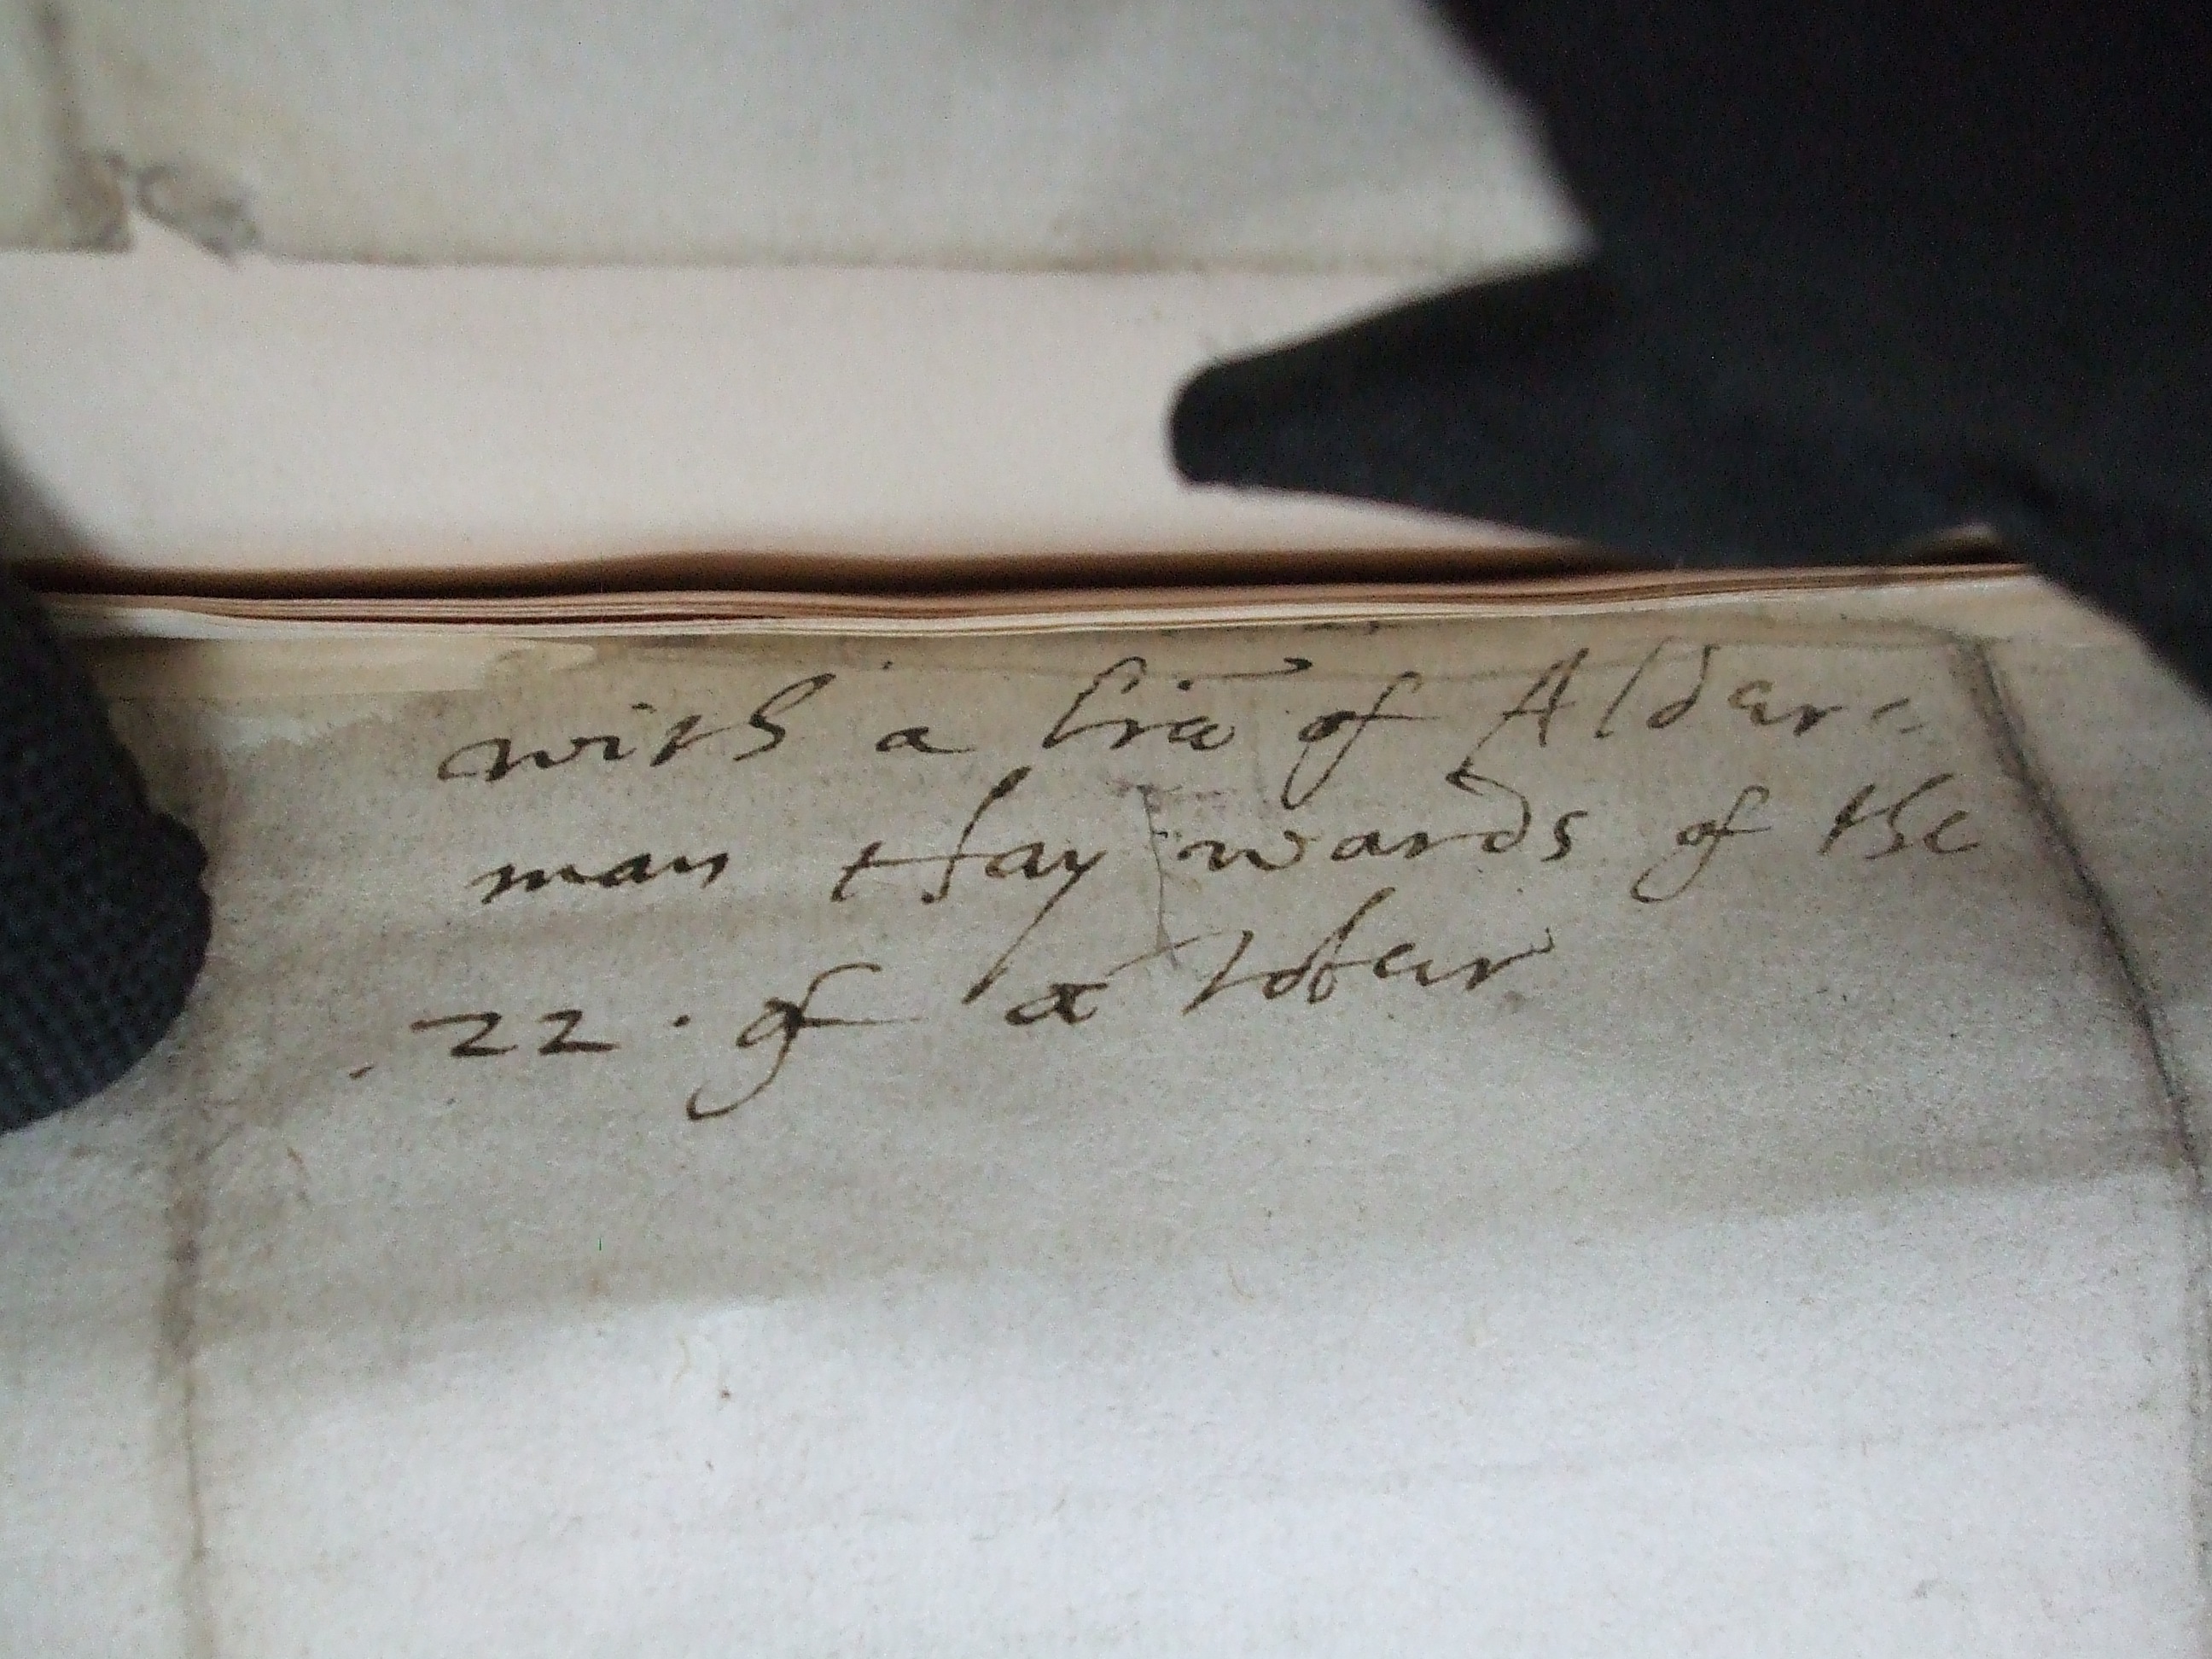 with a lr̃e of Alder-
man Haywards of the
.22. of october